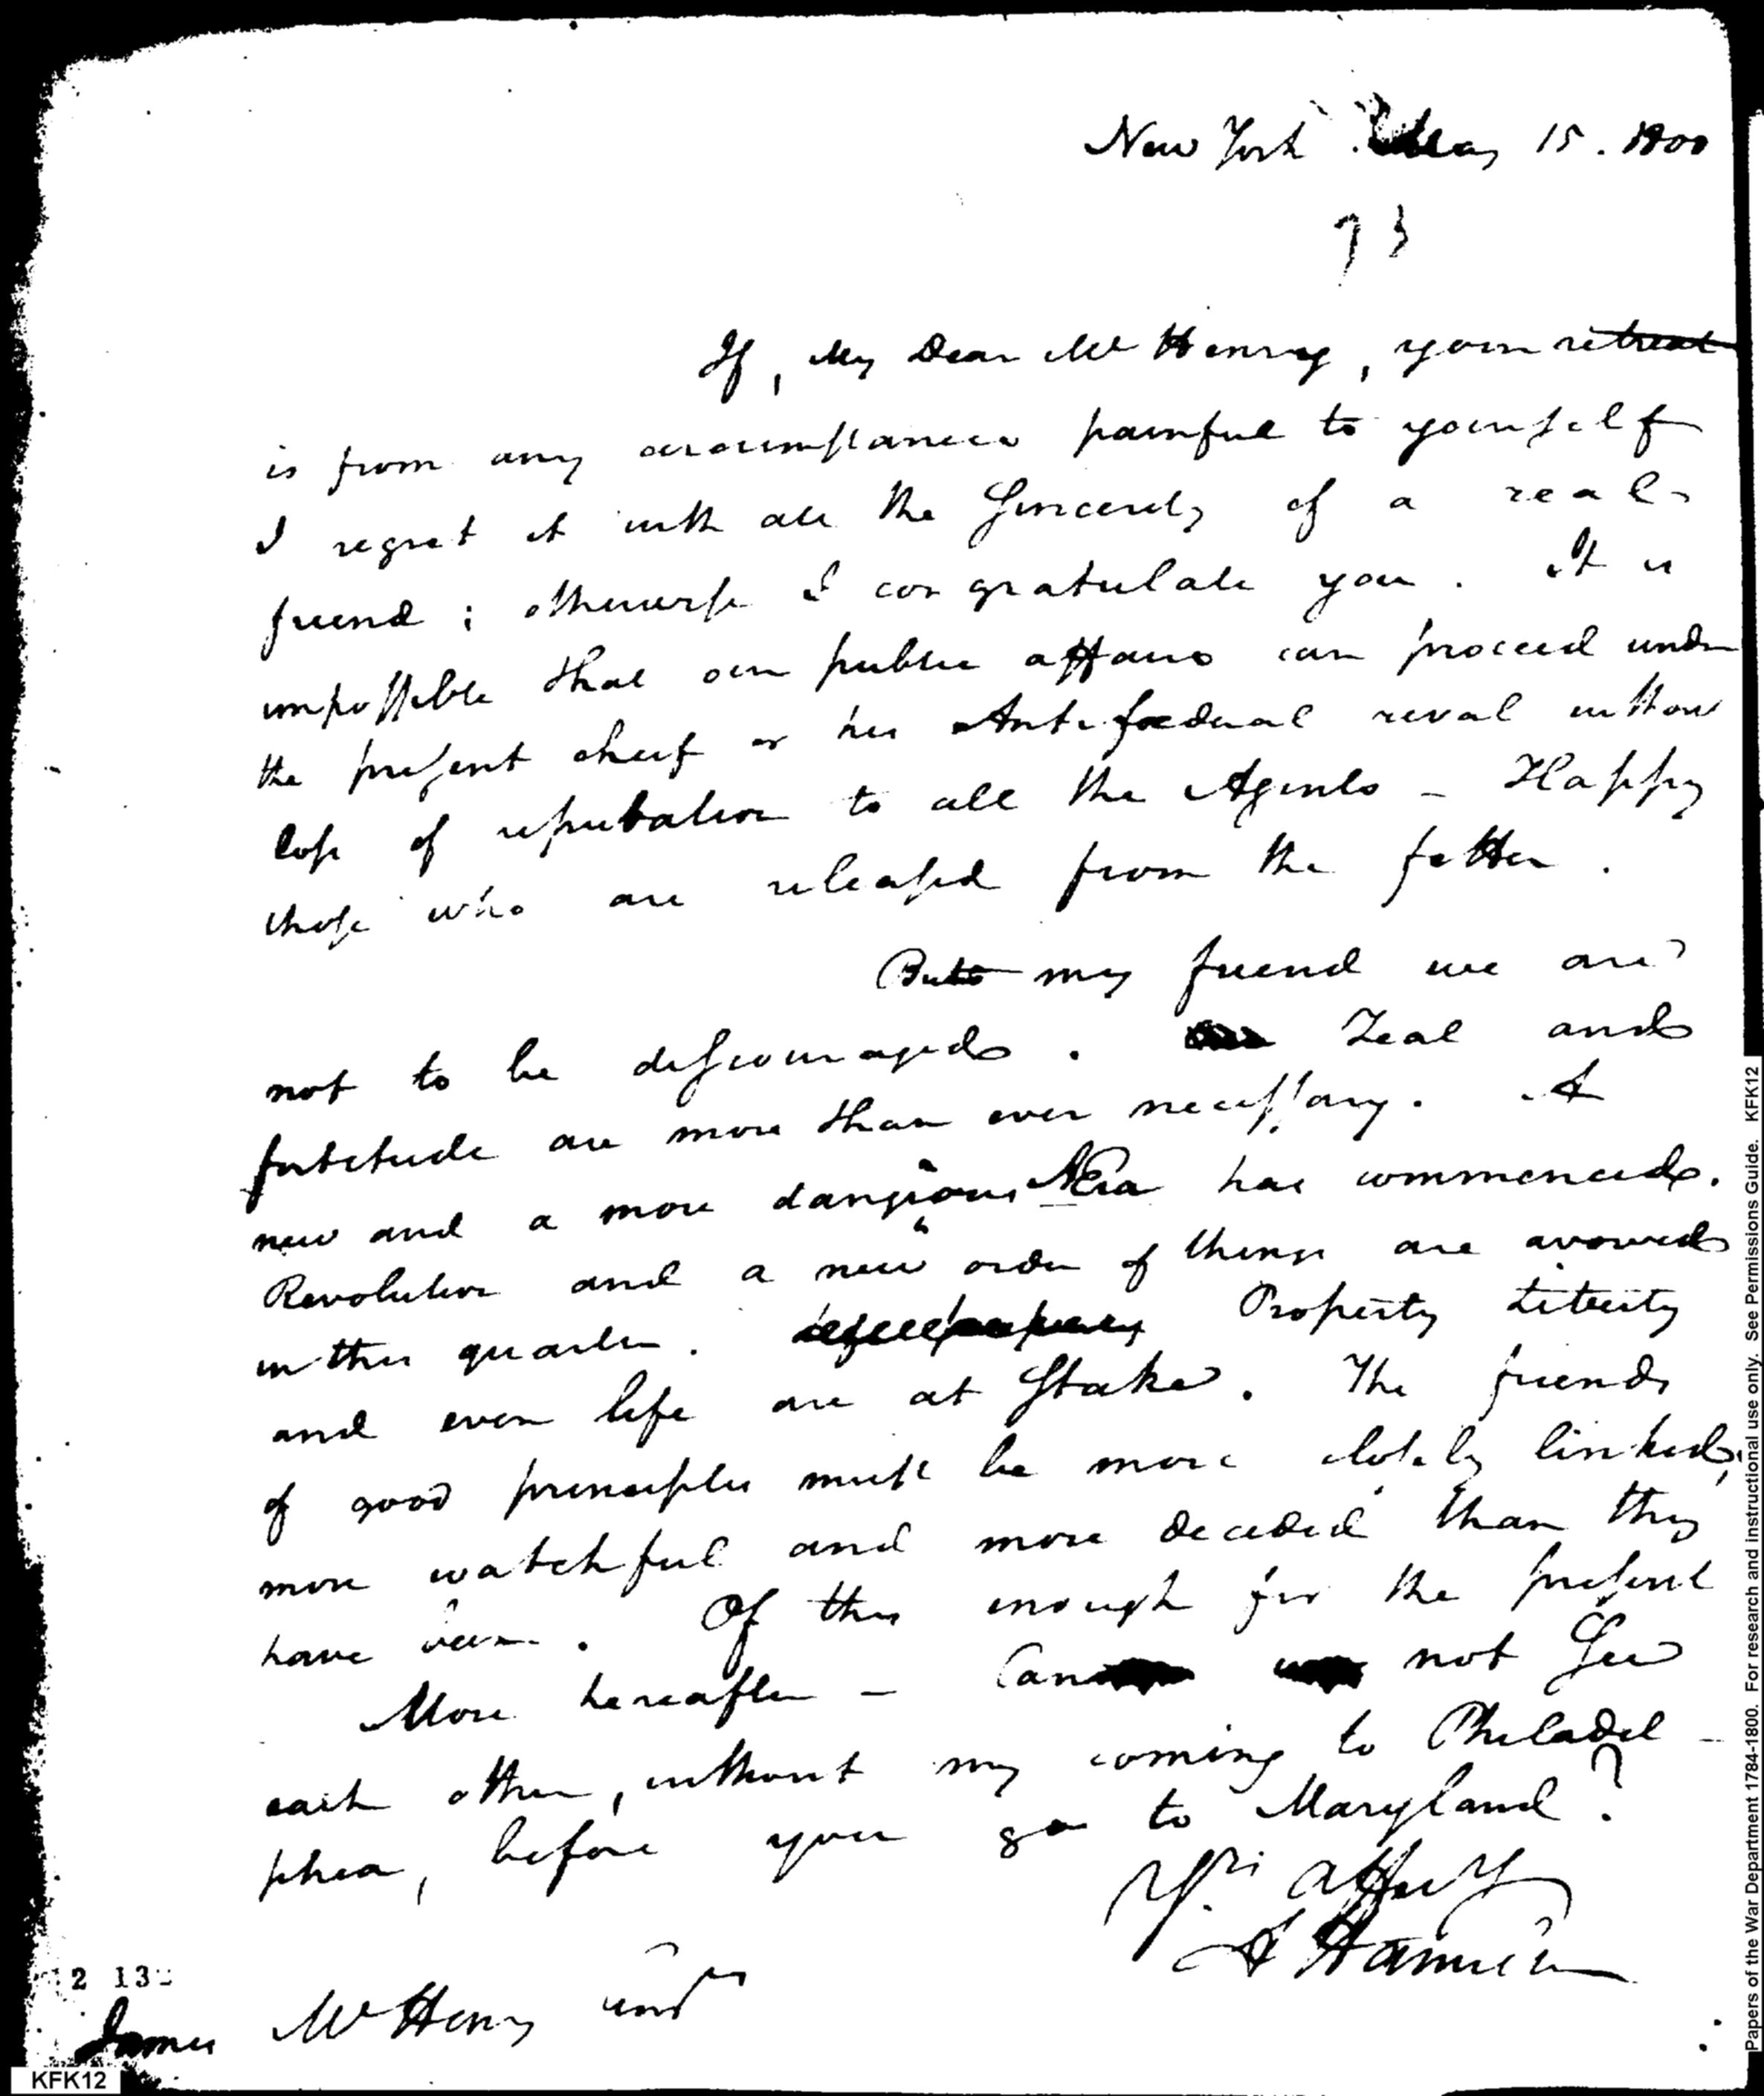 New York May 15. 1800
73
If, My Dear McHenry, your retreat
is from any circumstances painful to yourself
I regret it with all the Sincerity of a real
friend; otherwise I congratulate you. It is
impossible that our public affairs can proceed under
the present chief or his Antifœderal rival without
loss of reputation to all the Agents – Happy
those who are released from the fetter.
But my friend we are
not to be discouraged. Zeal and
fortitude are more than ever necessary. A
new and a more dangerous Æra has commenced.
Revolution and a new order of things are avowed
in this quarter. Property Liberty
and even life are at Stake. The friends
of good principles must be more closely linked,
more watchful and more decided than they
have been. Of this enough for the present
More hereafter – Can not See
each other, without my coming to Philadel-
phia, before you go to Maryland?
Yrs. affecly
A Hamilton
2 13
James McHenry
KFK12
Papers of the War Department 1784-1800. For research and instructional use only. See Permissions Guide. KFK12